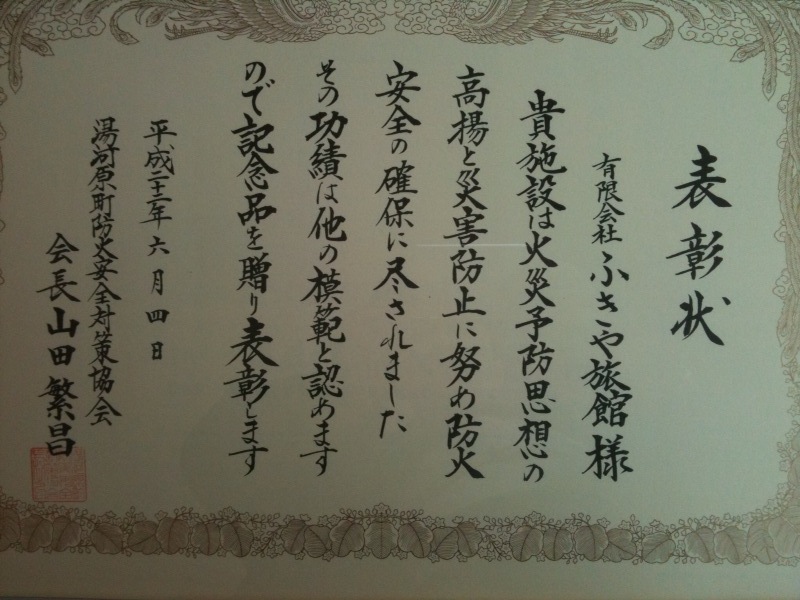 表彰状
有限会社 ふきや旅館 様
貴施設は火災予防思想の
高揚と災害防止に努め防火
安全の確保に尽されました
その功績は他の模範と認めます
ので記念品を贈り表彰します
平成二十二年六月四日
湯河原町防火安全対策協会
会長 山田繁昌